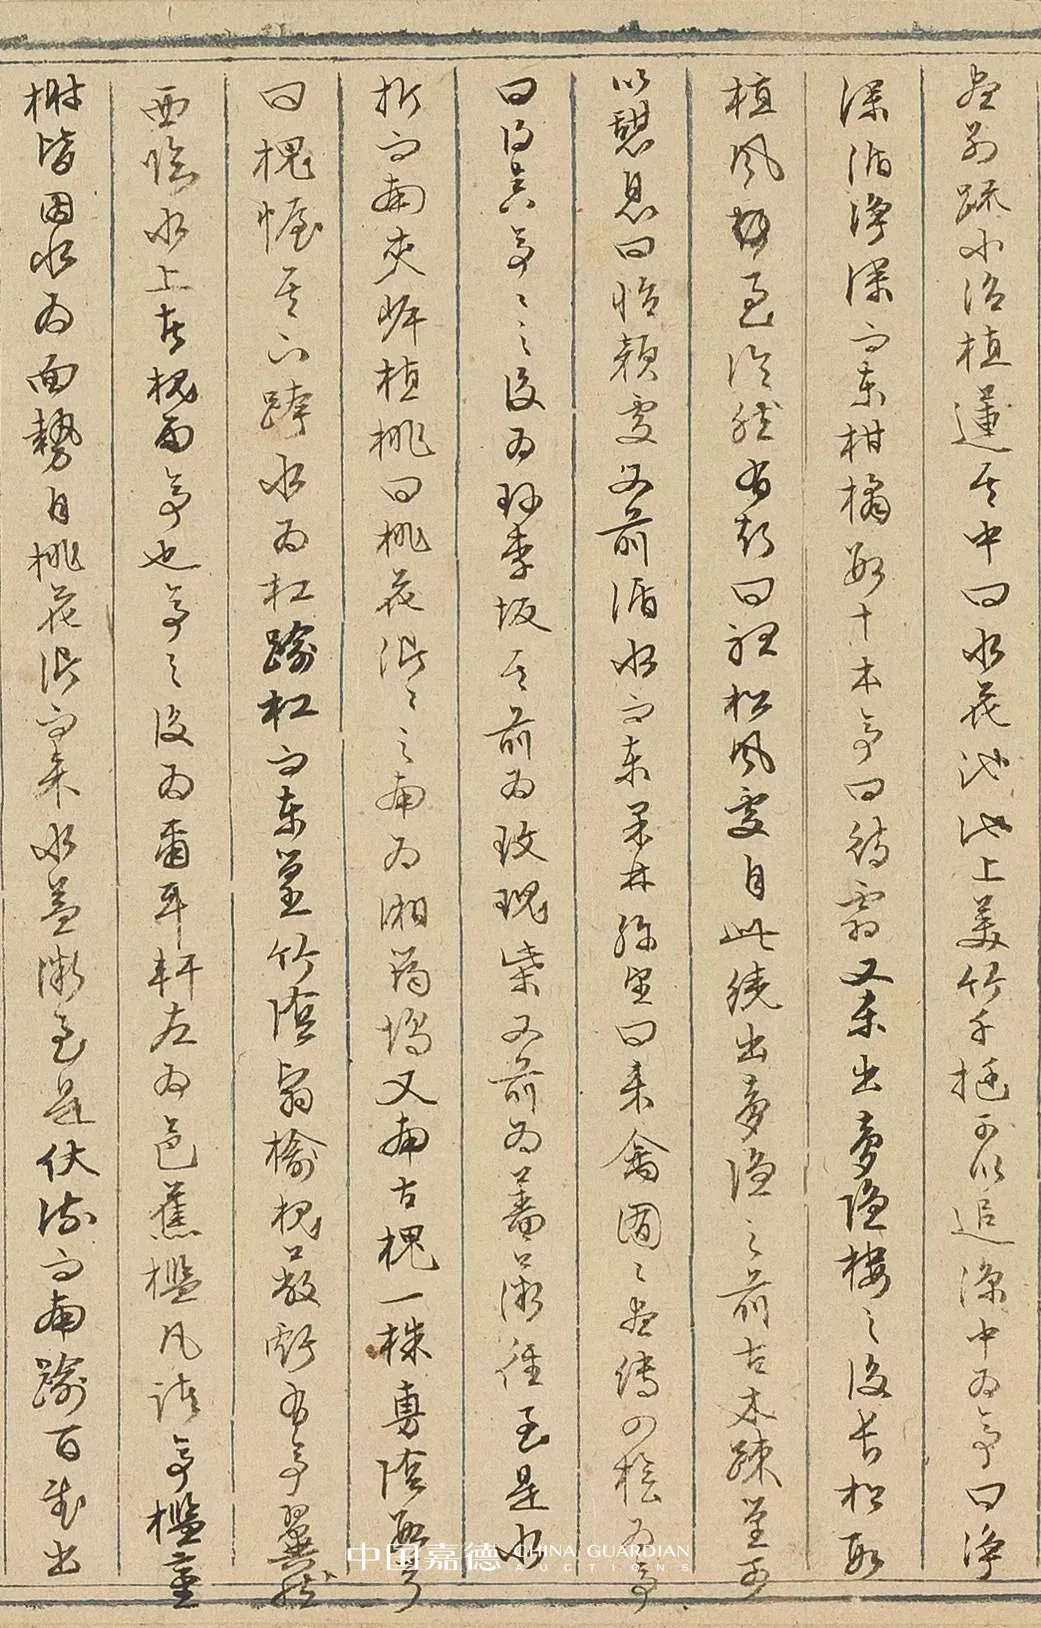 盡別疏小沼植蓮其中曰水花池池上美竹千挺可以追涼中為亭曰淨
深循淨深而東柑橘數十本亭曰待霜又東出夢隱樓之後長松數
植風至泠然有聲曰聽松風處自此繞出夢隱之前古木疎篁可
以憩息曰怡顏處又前循水而東果林彌望曰來禽囿囿盡縛四檜為亭
曰得真亭亭之後為珍李坂其前為玫瑰柴又前為薔薇徑至是水
折而南夾岸植桃曰桃花沜沜之南為湘筠塢又南古槐一株敷陰數弓
曰槐幄其下跨水為杠踰杠而東篁竹陰翳榆槐蔽虧有亭翼然
西臨水上者槐雨亭也亭之後為爾耳軒左為芭蕉檻凡諸亭檻臺
榭皆因水為面勢自桃花沜而來水益微至是伏流而南踰百武出
中国嘉德 CHINA GUARDIAN
AUCTIONS